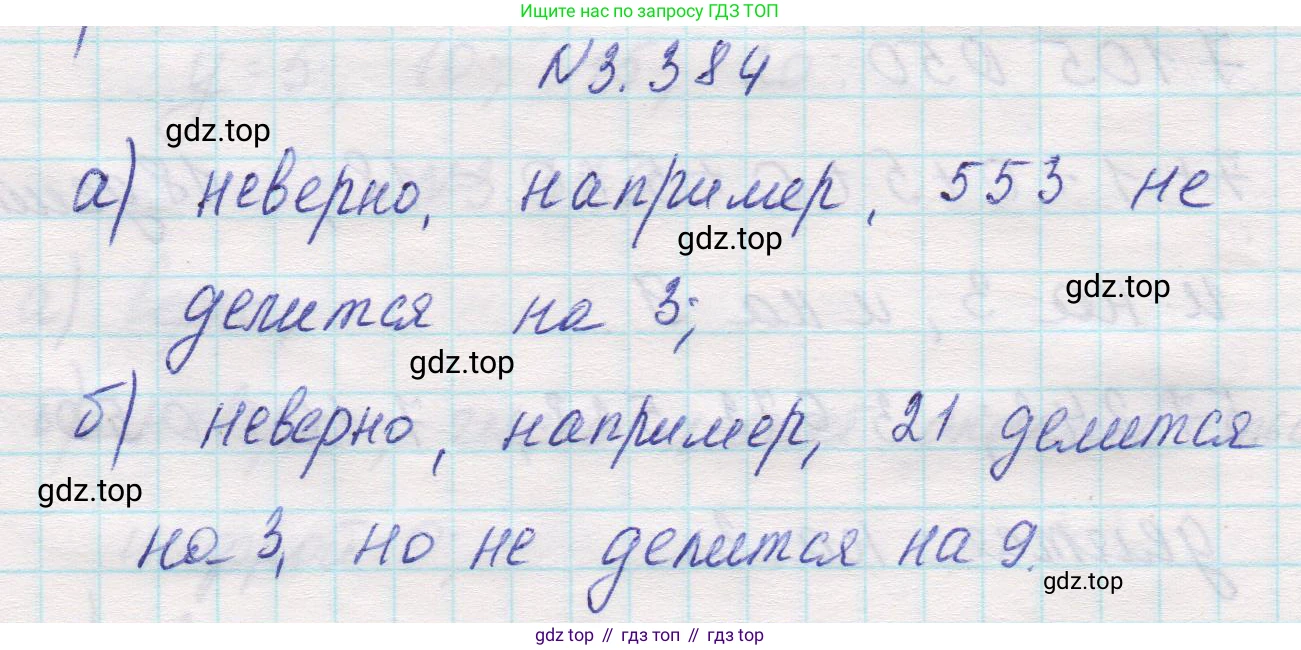 Ищите нас по запросу ГДЗ ТОП
№3.384
gdz.top
а) неверно, например, 553 не
gdz.top
gdz.top
делится на 3;
gdz.top
б) неверно, например, 21 делится
gdz.top
на 3, но не делится на 9.
gdz.top
gdz top // гдз топ // гдз top